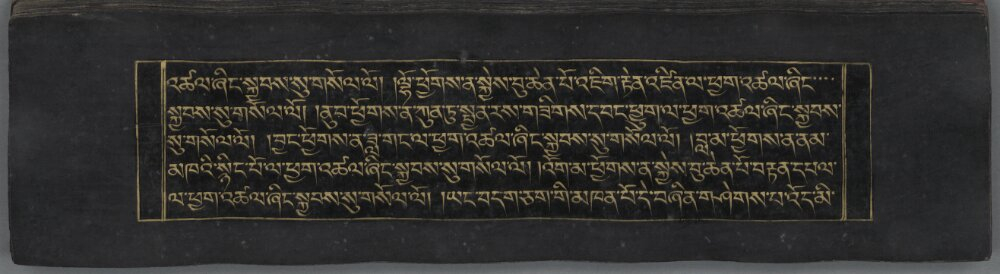 འཚལ་ཞིང་སྐྱབས་སུ་གསོལ་ལོ། །ལྷོ་ཕྱོགས་ན་སྐྱེས་བུ་ཆེན་པོ་འཇིག་རྟེན་འཛིན་ལ་ཕྱག་འཚལ་ཞིང་
སྐྱབས་སུ་གསོལ་ལོ། །ནུབ་ཕྱོགས་ན་ཀུན་ཏུ་སྤྱན་རས་གཟིགས་དབང་ཕྱུག་ལ་ཕྱག་འཚལ་ཞིང་སྐྱབས་
སུ་གསོལ་ལོ། །བྱང་ཕྱོགས་ན་གླང་ལ་ཕྱག་འཚལ་ཞིང་སྐྱབས་སུ་གསོལ་ལོ། །བླ་མ་ཕྱོགས་ན་ནམ་
མཁའི་སྙིང་པོ་ལ་ཕྱག་འཚལ་ཞིང་སྐྱབས་སུ་གསོལ་ལོ། །འོག་མ་ཕྱོགས་ན་སྐྱེས་བུ་ཆེན་པོ་བརྟན་དཔལ་
ལ་ཕྱག་འཚལ་ཞིང་སྐྱབས་སུ་གསོལ་ལོ། །ཡང་བདག་ཅག་གི་མཁན་པོ་དེ་བཞིན་གཤེགས་པ་འོད་མི་